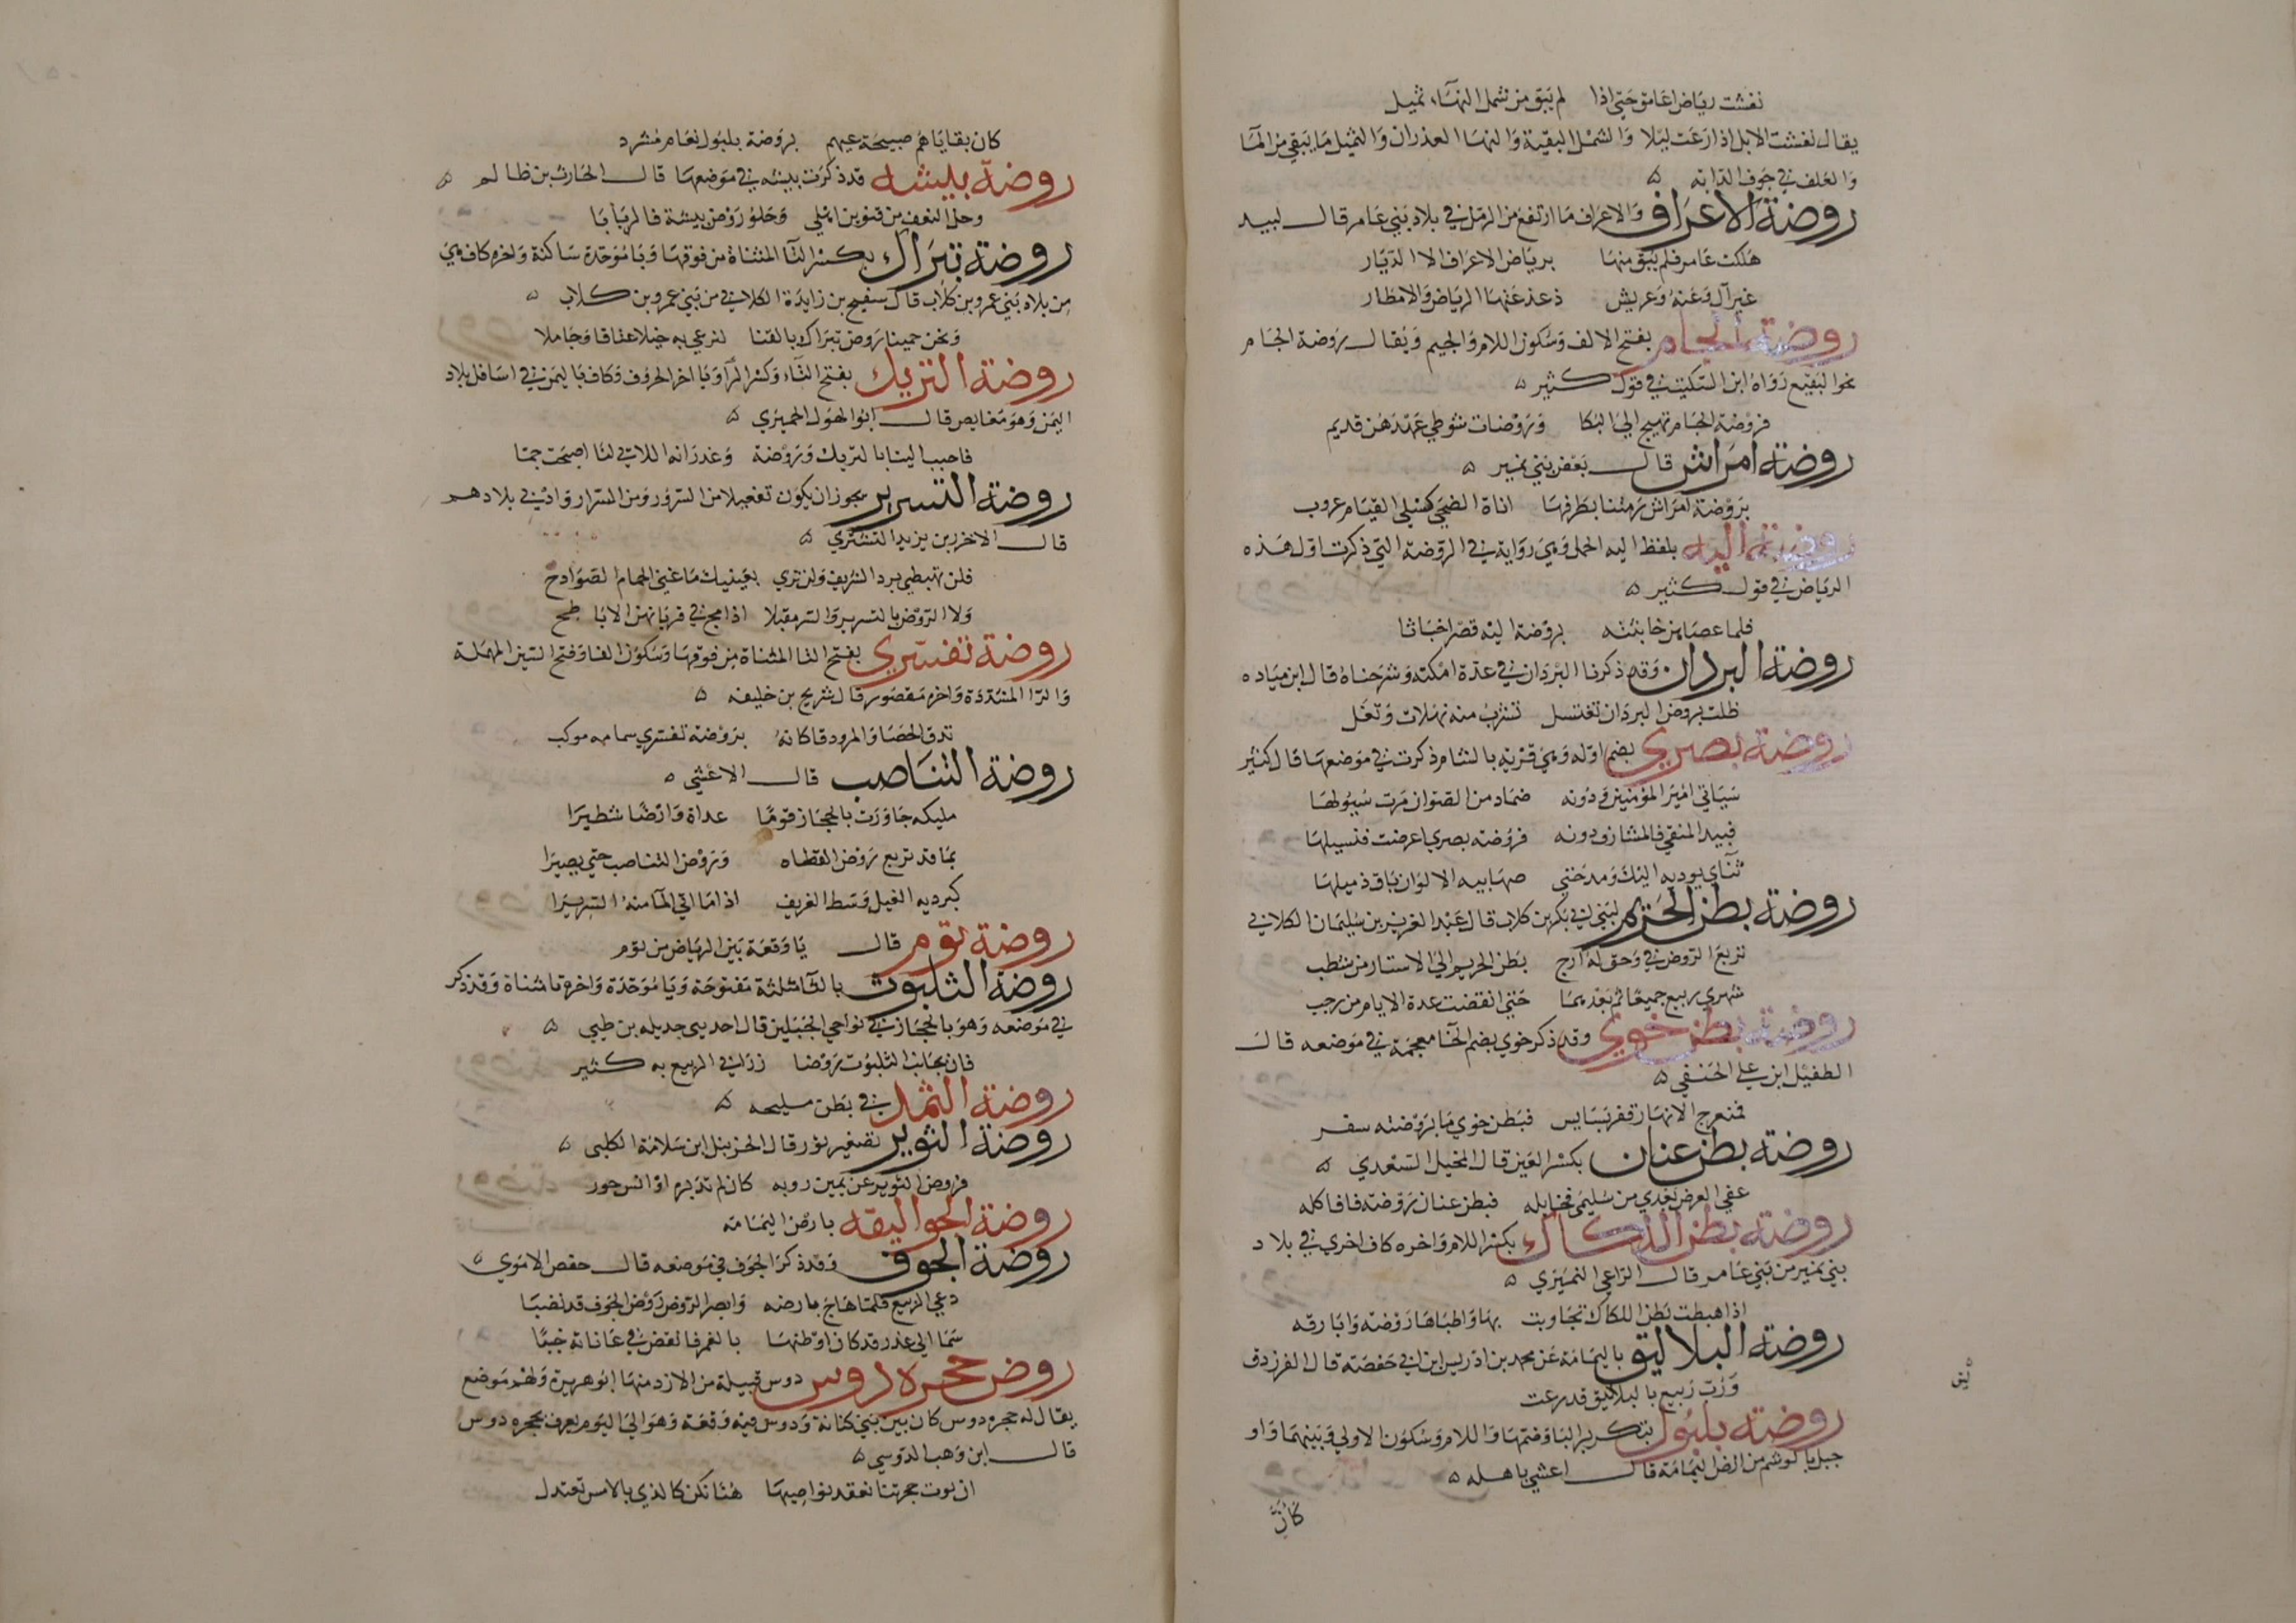 نفشت رياض اعامق حتى اذا لم يبق من شمل النهآء ثميل
يقال نفشت الابل اذا رعت ليلا والشمل البقية والنهاء الغدران والثميل ما يبقى من المآ
والعلف في جوف الدابه ۵
روضة الاعراف والاعراف ما ارتفع من الرمل في بلاد بني عامر قال لبيد
هلكت عامر فلم يبق منها برياض الاعراف الا الديار
غير آل وعنة وعريش ذعذعتها الرياض والامطار
روضة ألجام بفتح الالف وسكون اللام والجيم ويقال روضة الجام
نحو البقيع رواه ابن السكيت في قول كثير ۵
فروضة الجام تهيج الي البكا وروضات شوطي عهدهن قديم
روضة امراش قال بعض بني نمير ۵
بروضة امراش رمتنا بطرفها اناة الضحي كسلي القيام عروب
روضة اليه بلفظ اليه الحمل وهي رواية في الروضة التي ذكرت اول هذه
الرياض في قول كثير ۵
فلما عصاهن خابثنه بروضة اليه قصر اخباثا
روضة البردان وقد ذكرنا البردان في عدة امكنه وشرحناه قال ابن مياده
ظلت بروض البردان تغتسل تشرب منه نهلات وتعل
روضة بصري بضم اوله وهي قرية بالشام ذكرت في موضعها قال كثير
سياتي امير المؤمنين ودونه ضماد من الصوان مرت سيولها
فبيد المنقي فالمشارف دونه فروضة بصري اعرضت فنسيلها
ثنآي يوديه اليك ومدحتي صهابيه الالوان باق ذميلها
روضة بطن الخريم لبني ابي بكر بن كلاب قال عبد العزيز بن سليمان الكلابي
تربع الروض في وحق له ارج بطن الخريم الي الاستار من شطب
شهري ربيع جميعا ثم بعدهما حتي انقضت عدة الايام من رجب
روضة بطن خوي وقد ذكر خوي بضم الخآ معجمة في موضعه قال
الطفيل ابن علي الحنفي ۵
فمنعرج الانهار قفر بسابس فبطن خوي ما بروضته سفر
روضة بطن عنان بكسر العين قال المخبل السعدي ۵
عفي العرض بعدي من سليمي فحائله فبطن عنان روضه فافاكله
روضة بطن اللكاك بكسر اللام واخره كاف اخري في بلاد
بني نمير من بني عامر قال الراعي النميري ۵
اذا هبطت بطن اللكاك تجاوبت بها واطباها روضه وابارقه
روضة البلاليق باليمامة عن محمد بن ادريس ابن ابي حفصة قال الفرزدق
ورب ربيع بالبلاليق قد رعت
روضة بلبول بتكرير البا وفتحها واللام وسكون الاولي وبينهما واو
جبل بالوشم من ارض اليمامة قال اعشي باهله ۵
كان
كان بقاياهم صبيحة غبهم بروضة بلبول نعام مشرد
روضة بيشه قد ذكرت بيشه في موضعها قال الحارث بن ظالم ۵
وحل النعف من قنوين اهلي وحلو روض بيشة فالربابا
روضة تبراك بكسر التآ المثناة من فوقها وبا موحدة ساكنة واخره كاف وهي
من بلاد بني عمرو بن كلاب قال سفيح بن زايدة الكلابي من بني عمرو بن كلاب ۵
ونحن حمينا روض تبراك بالقنا لنرعي به خيلا عتاقا وجاملا
روضة التريك بفتح التآء وكسر الرآ ويا اخر الحروف وكاف باليمن في اسافل بلاد
اليمن وهو مغايص قال ابو الهول الحميري ۵
فاحبب الينا بالتريك وروضة وغدرانه اللاتي لنا اصبحت جما
روضة التسرير يجوز ان يكون تفعيلا من السرور ومن السرار واد في بلادهم
قال الاخرم بن يزيد التشتري ۵
فلن تهبطي برد الشريف ولن تري بعينيك ما غني الحمام الصوادح
ولا الروض بالتسرير والسر مقبلا اذا مج في قريانهن الاباطح
روضة تفسري بفتح التا المثناة من فوقها وسكون الفا وفتح السين المهملة
والرا المشددة واخره مقصور قال شريح بن خليفه ۵
تدق الحصا والمرو دقا كانه بروضة تفسري سمامه موكب
روضة التناصب قال الاعشي ۵
مليكه جاورت بالحجاز قوما عداة وارضا شطيرا
بما قد تربع روض القطاه وروض التناصب حتي يصيرا
كبرديه الغيل وسط الغريف اذا ما اتي المآ منه السريرا
روضة تؤم قال يا وقعة بين الرياض من تؤم
روضة الثلبوت بالثآ مثلثة مفتوحة وبا موحدة واخره تا مثناة وقد ذكر
في موضعه وهو بالحجاز في نواحي الجبلين قال احد بني جديله بن طيي ۵
فان بجانب الثلبوت روضا زرابي الربيع به كثير
روضة الثمد في بطن مليحه ۵
روضة الثوير تصغير ثور قال الحزنبل ابن سلامة الكلبي ۵
فروض الثوير عن يمين رويه كان لم تديره اوانس حور
روضة الجواليقه بارض اليمامه
روضة الجوف وقد ذكر الجوف في موضعه قال حفص الاموي ۵
دعي الربيع فلما هاج بارضه وابصر الروض روض الجوف قد نضبا
سما الي عذر قد كان اوطنها بالغمر فالغض في عاناته خببا
روض حجره دوس دوس قبيلة من الازد منها ابو هريرة ولهم موضع
يقال له حجره دوس كان بين بني كنانة ودوس فيه وقعة وهو الي اليوم يعرف بحجره دوس
قال ابن وهب الدوسي ۵
ان نوت حجرتنا نعقد نواصيها هنا نكن كالذي بالامس نعتدل